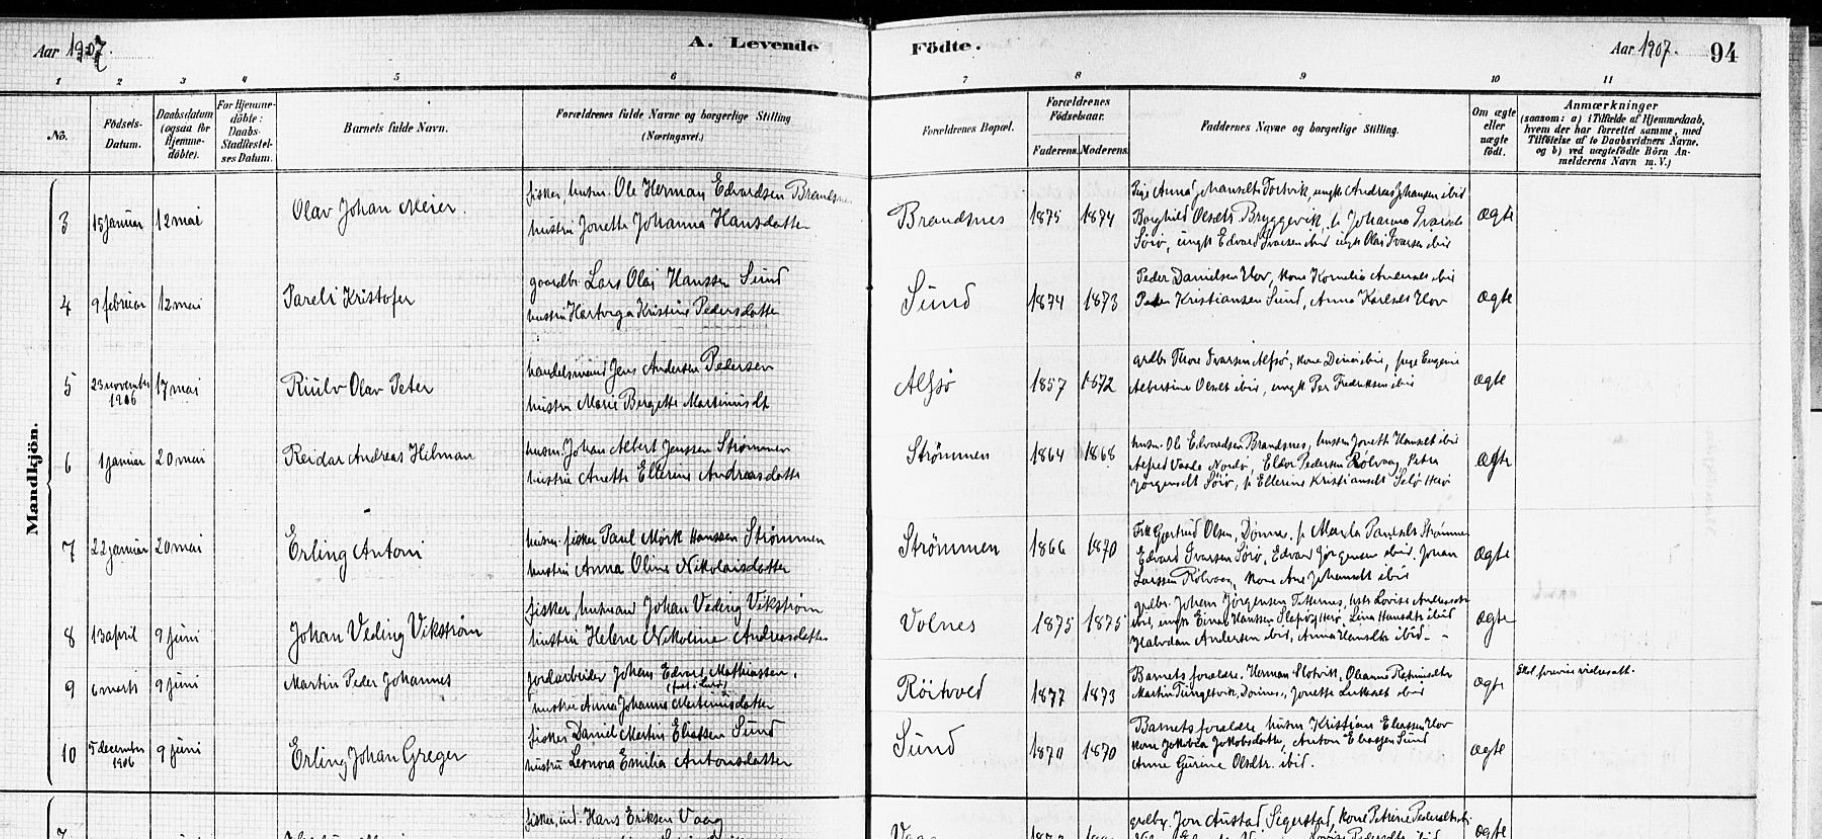 Aar 1907.
A. Levende
Födte.
Aar 1907.
94
1 2 3 4 5 6 7 8 9 10 11
No.
Födsels-
Datum.
Daabsdatum
(ogsaa for
Hjemme-
döbte).
For Hjemme-
döbte:
Daabs-
Stadfæstel-
ses Datum.
Barnets fulde Navn.
Forældrenes fulde Navne og borgerlige Stilling
(Næringsvei.)
Forældrenes Bopæl.
Forældrenes
Födselsaar.
Faderens.
Moderens.
Faddernes Navne og borgerlige Stilling.
Om ægte
eller
uægte
födt.
Anmærkninger
(saasom: a) i Tilfælde af Hjemmedaab,
hvem der har forrettet samme, med
Tilföielse af to Daabsvidners Navne,
og b) ved uægtefödte Börn An-
melderens Navn m. V.)
Mandkjön.
3 15 januar 12 mai Olav Johan Meier.
fisker, husm. Ole Herman Edvardsen Brandsnes
hustru Jonette Johanna Hansdatter
Brandsnes 1875 1874
Andreas Johansen ibid
Borghild Olsdtr Bryggevik, Johanna
Sörö, ungk Edvard Ivarsen ibid ungk Olai Ivarsen ibid
ægte
4 9 februar 12 mai Pareli Kristofer
gaardbr Lars Olai Hanssen Sund
hustru Hartviga Kristine Pedersdatter
Sund 1874 1873
Peder Danielsen Hov, kone Kornelia Andersdt ibid
Peder Kristiansen Sund, Anna Karlsdt Hov
ægte
5 23 november 1906 17 mai Riulv Olav Peter
handelsmand Jens Andersen Pedersen
hustru Marie Bergette Martinusdt
Alfsö 1857 1872
grdbr Thore Ivarsen Alfsö, kone ibid, pige Eugenie
Albertine Olsdt ibid, ungk Per Fredriksen ibid
ægte
6 1 januar 20 mai Reidar Andreas Hilman
husm. Johan Albert Jenssen Strømmen
hustru Anette Ellerine Andreasdatter
Strømmen 1864 1868
husm. Ole Edvardsen Brandsnes, hustru Jonette Hansdt ibid
Alfred Nordø, Eldor Pedersen Rölvaag, Petra
Jörgensdt Sörö, p. Ellerine Kristiansdt Selö Herö
ægte
7 22 januar 20 mai Erling Antoni
husm. fisker Paul Mørk Hanssen Strømmen
hustru Anna Oline Nikolaisdatter
Strömmen 1866 1870
Frk Gjertrud Olsen, Dønnes. p. Marta Paulsdt Strømmen
Edvard Ivarsen Sörö, Edvard Jörgensen ibid, Johan
Larssen Rölvaag, kone Ane Johansdt ibid
ægte
8 13 april 9 juni Johan Veding Vikstrøm
fisker, husmand Johan Veding Vikstrøm
hustru Helene Nikoline Andreasdatter
Volnes 1875 1875
grdbr. Johan Jörgensen Titternes, Lovise Andreasdtr
ibid, ungk Einar Hanssen Herö, Lina Hansdtr ibid
Halvdan Andersen ibid, Anna Hansdtr ibid.
ægte
9 6 marts 9 juni Martin Peder Johannes
jordarbeider Johan Edvard Mathiassen.
hustru Anna Johanna Martinusdatter
Röitved 1877 1873
Barnets forældre. Herman Slotvik, Oleanna
Martin Dønnes, Jonette ibid
ægte
10 5 december 1906 9 juni Erling Johan Greger
fisker Daniel Martin Eliassen Sund
hustru Leonora Emilia Antonsdatter
Sund 1870 1870
Barnets forældre, husm Kristian Eliassen Hov
kone Jakobia Jakobsdatter, Anton Eliassen Sund
Anne Gurine Olsdtr. ibid.
ægte
fisker, ind. Hans Eriksen Vaag
grdbr. Jon Austad, Segerstad, kone Petrine Pedersdatter
ægte